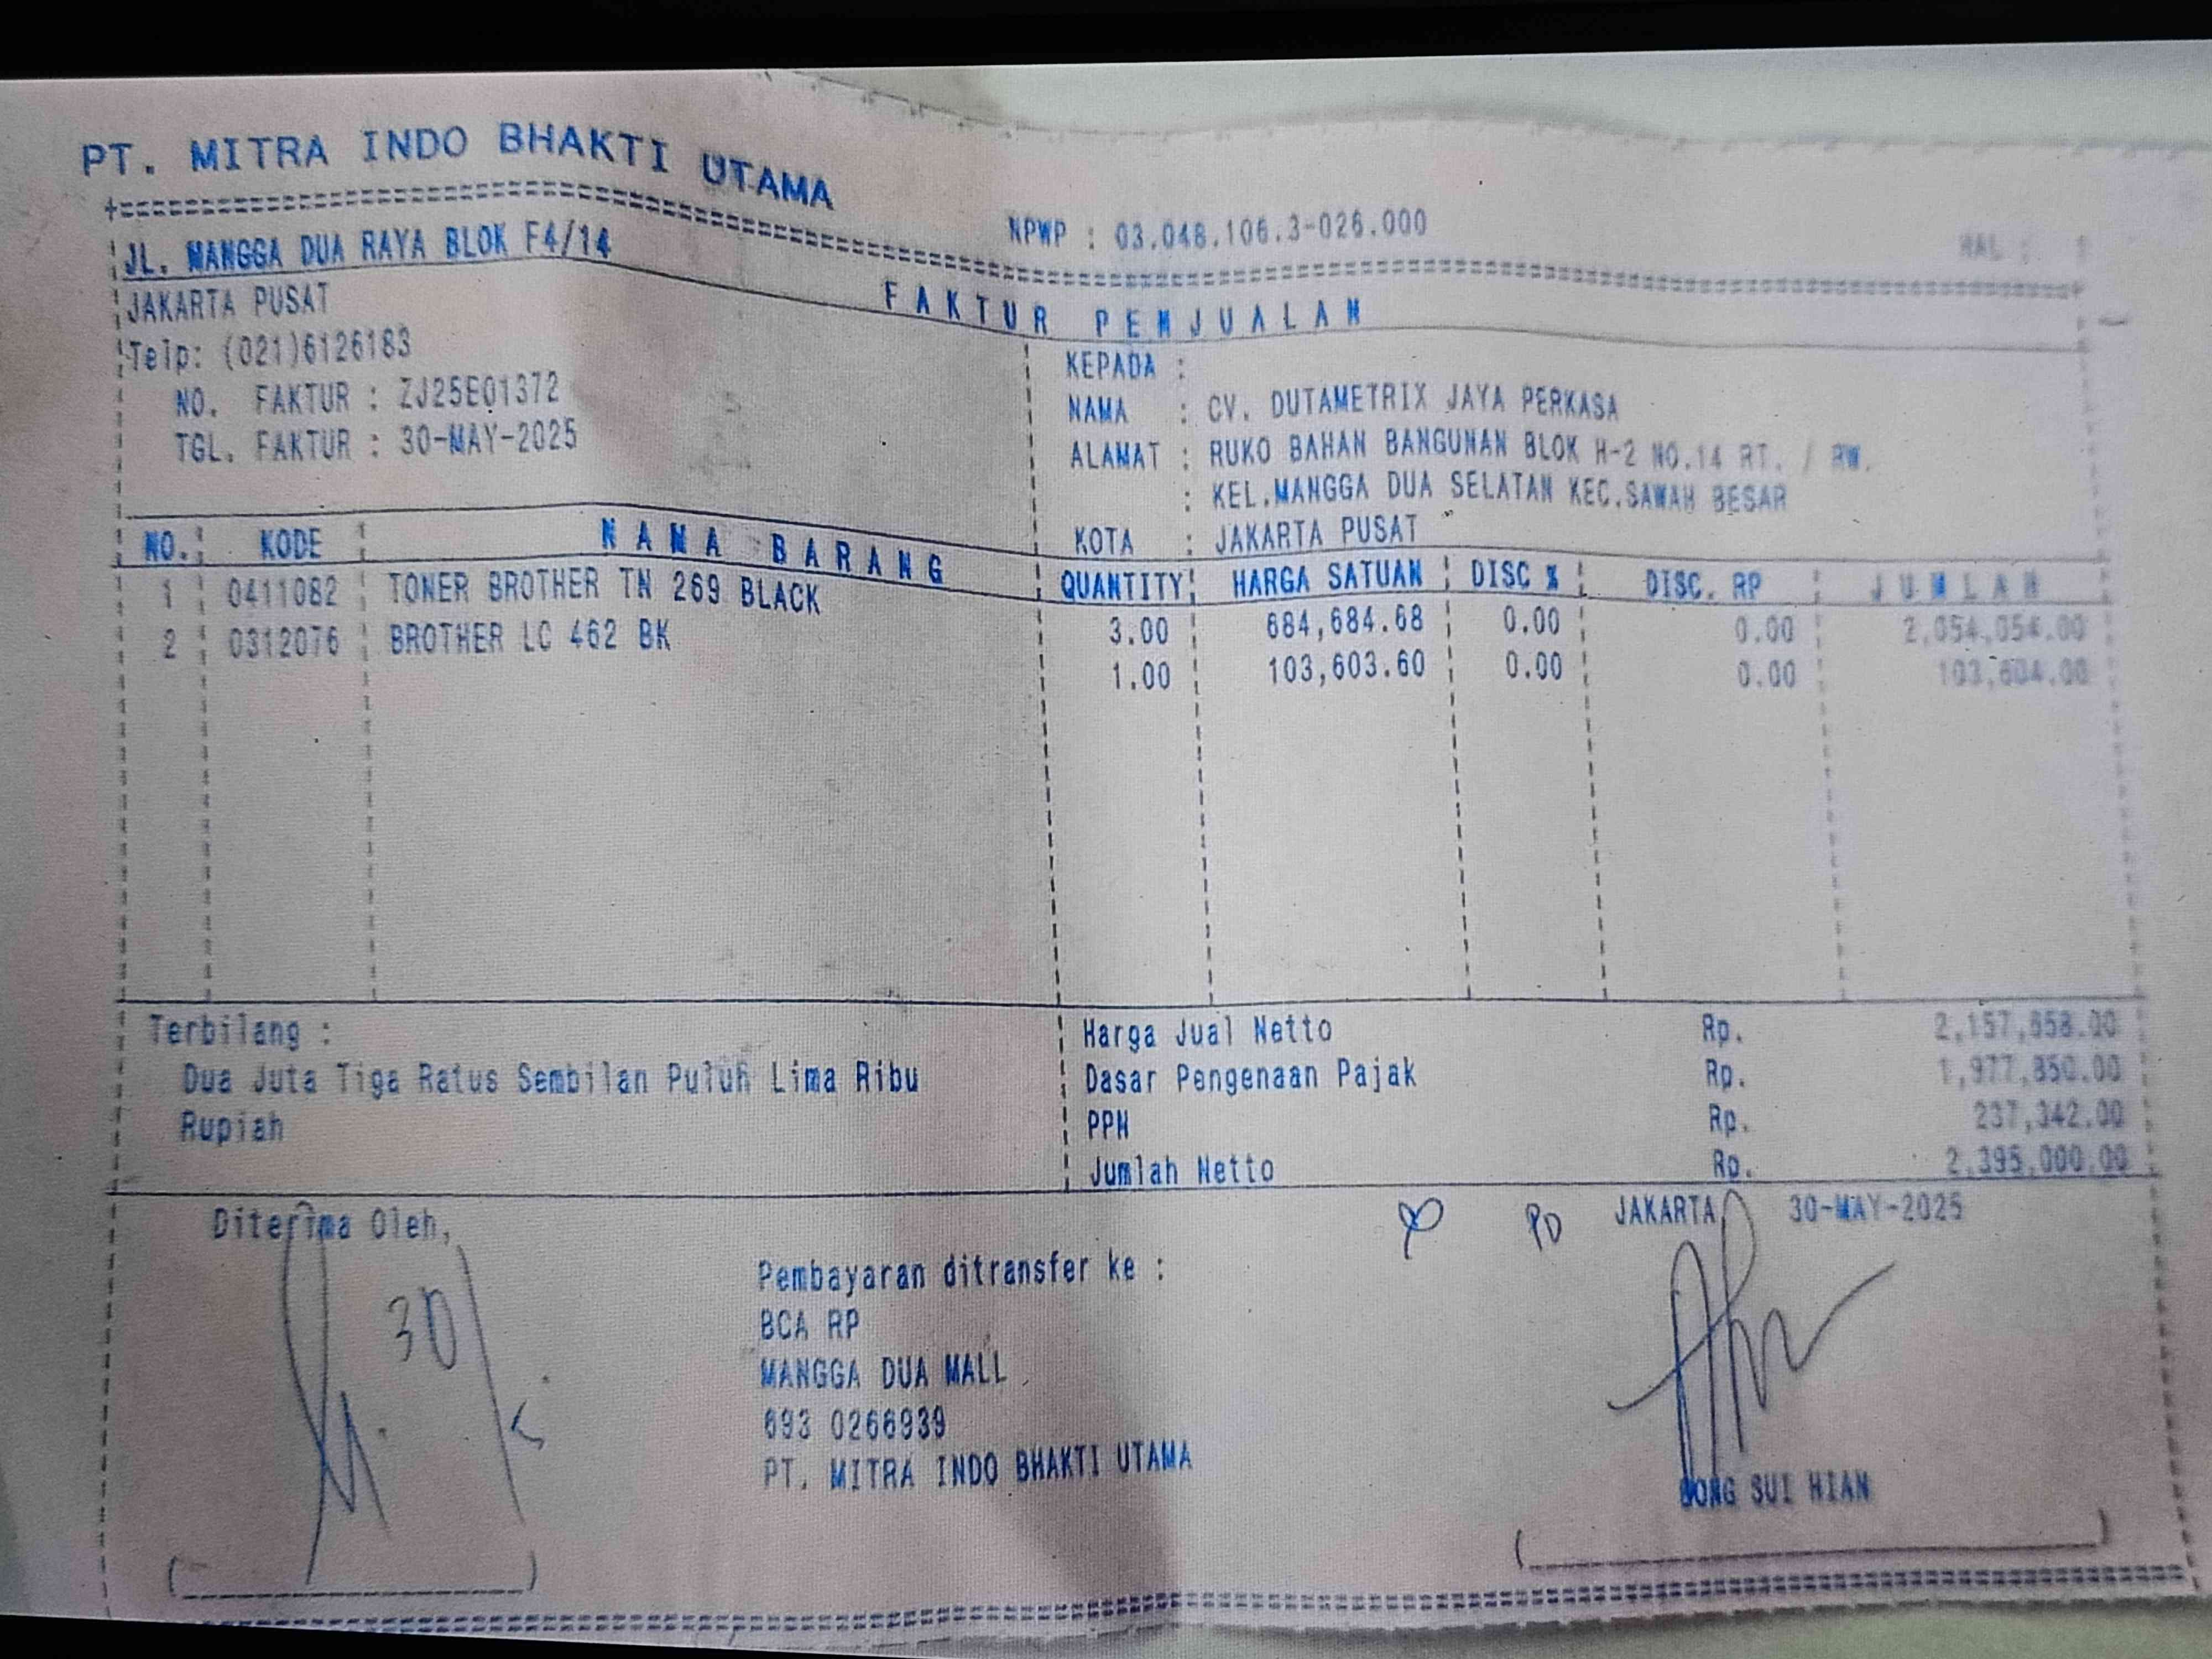 PT. MITRA INDO BHAKTI UTAMA
NPWP : 03.048.106.3-026.000
HAL :
JL. MANGGA DUA RAYA BLOK F4/14
JAKARTA PUSAT
Telp: (021)6126183
NO. FAKTUR : ZJ25E01372
TGL. FAKTUR : 30-MAY-2025
FAKTUR PENJUALAN
KEPADA :
NAMA : CV. DUTAMETRIX JAYA PERKASA
ALAMAT : RUKO BAHAN BANGUNAN BLOK H-2 NO.14 RT. / RW.
: KEL.MANGGA DUA SELATAN KEC.SAWAH BESAR
KOTA : JAKARTA PUSAT
NO. KODE NAMA BARANG QUANTITY HARGA SATUAN DISC % DISC. RP JUMLAH
1 0411082 TONER BROTHER TN 269 BLACK 3.00 684,684.68 0.00 0.00 2,054,054.00
2 0312076 BROTHER LC 462 BK 1.00 103,603.60 0.00 0.00 103,604.00
Terbilang :
Dua Juta Tiga Ratus Sembilan Puluh Lima Ribu
Rupiah
Harga Jual Netto Rp. 2,157,658.00
Dasar Pengenaan Pajak Rp. 1,977,850.00
PPN Rp. 237,342.00
Jumlah Netto Rp. 2,395,000.00
Diterima Oleh,
30/
PD
JAKARTA, 30-MAY-2025
Pembayaran ditransfer ke :
BCA RP
MANGGA DUA MALL
693 0266939
PT. MITRA INDO BHAKTI UTAMA
SUI HIAN